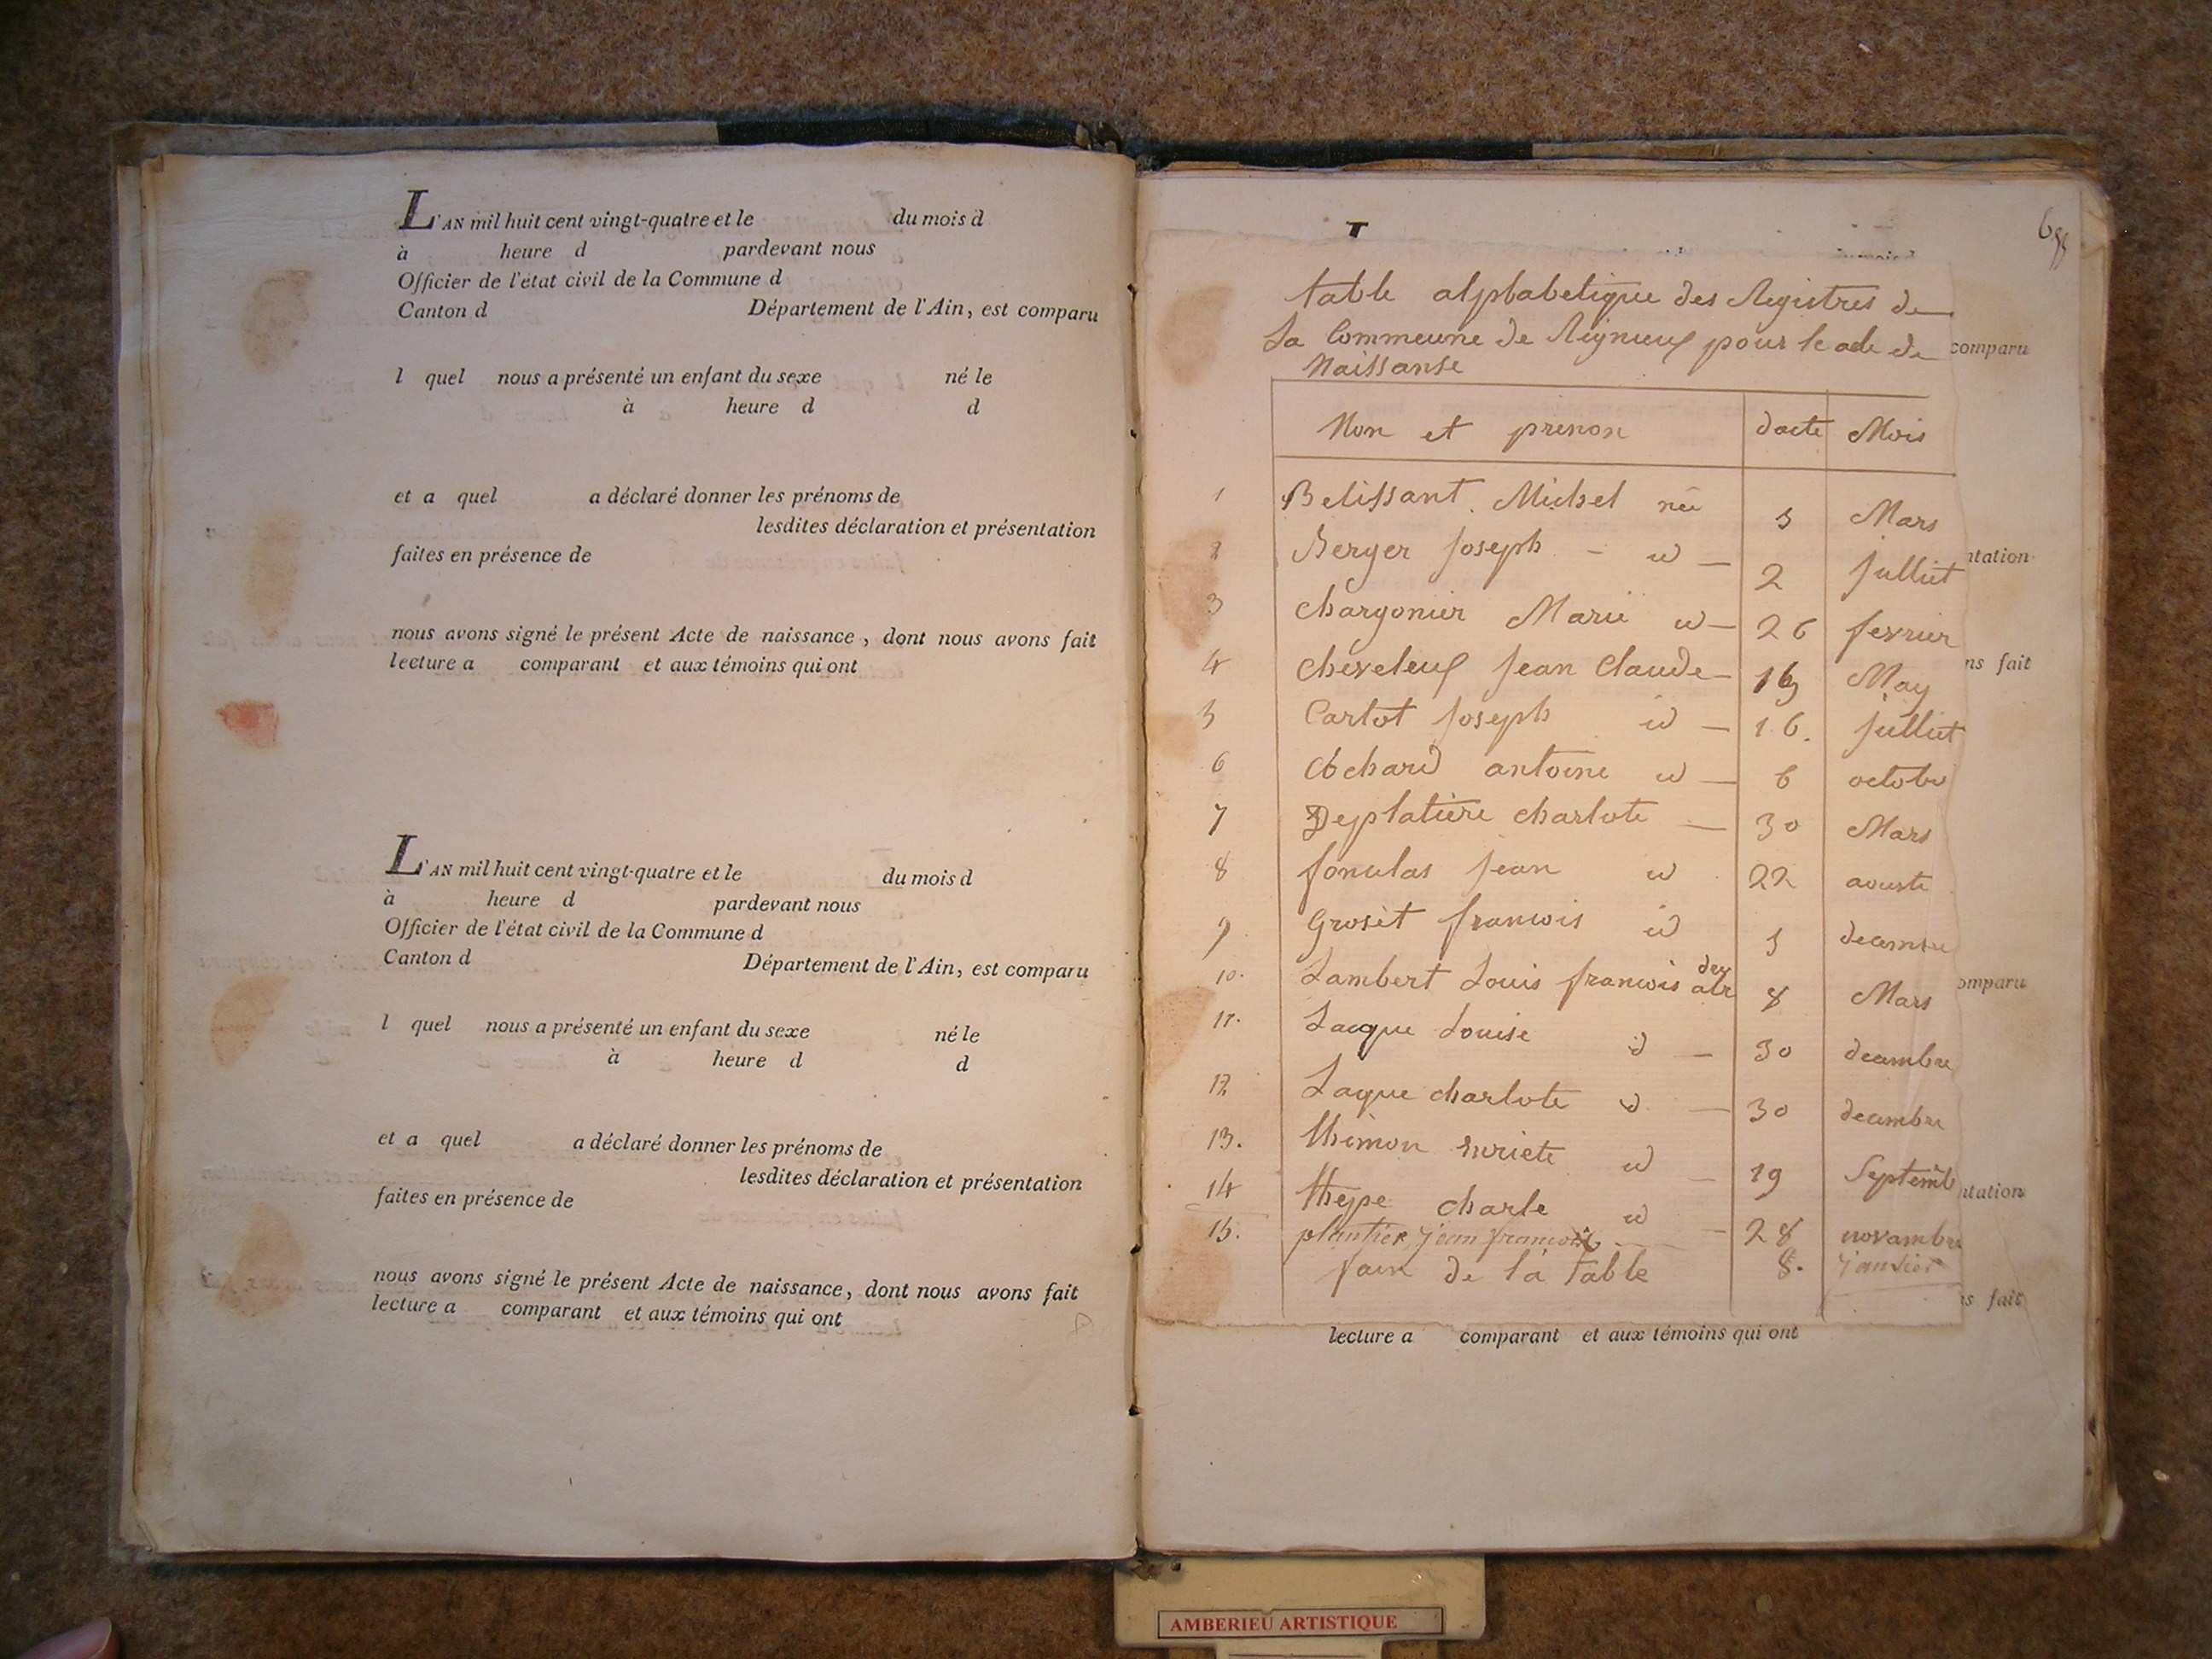 L'AN mil huit cent vingt-quatre et le du mois d
à heure d pardevant nous
Officier de l'état civil de la Commune d
Canton d Département de l'Ain, est comparu
l quel nous a présenté un enfant du sexe né le
à heure d d
et a quel a déclaré donner les prénoms de
lesdites déclaration et présentation
faites en présence de
nous avons signé le présent Acte de naissance, dont nous avons fait
lecture a comparant et aux témoins qui ont
L'AN mil huit cent vingt-quatre et le du mois d
à heure d pardevant nous
Officier de l'état civil de la Commune d
Canton d Département de l'Ain, est comparu
l quel nous a présenté un enfant du sexe né le
à heure d d
et a quel a déclaré donner les prénoms de
lesdites déclaration et présentation
faites en présence de
nous avons signé le présent Acte de naissance, dont nous avons fait
lecture a comparant et aux témoins qui ont
table alphabetique des Registres de
La Commeune de Rignieux pour le acte de
Naissanse
Non et prenon dacte Mois
1 Belissant Michel née 5 Mars
2 Berger Joseph id 2 Julliet
3 Chargonier Marie id 26 fevrier
4 Cheveleux Jean Claude May
5 Carlot Joseph id 16. Julliet
6 Cochard antoine id 6 octobre
7 Deplatiere charlote 30 Mars
8 Jean id 22 aouste
9 Groset francois id 5
10. Lambert Louis francois 8 Mars
11. Lacque Louise id 30 decambre
12 Laque charlote id 30 decambre
13. thimon id 19 Septemb
14 charle id 28 novambre
15. plantier jean francois 8. janvier
de la table
comparu
ntation
ns fait
omparu
ntation
ns fait
lecture a comparant et aux témoins qui ont
AMBERIEU ARTISTIQUE